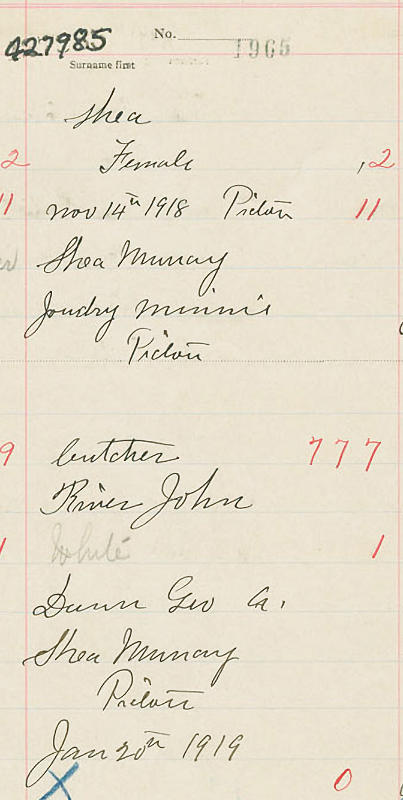 427985 No. 1965
Surname first
Shea
2 Female , 2
11 nov 14th 1918 Pictou 11
Shea Murray
Joudry Minnie
Pictou
9 butcher 777
River John
1 White 1
Dunn Geo A.
Shea Murray
Pictou
Jan 20th 1919
X 0